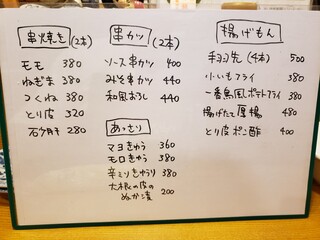 串焼き (2本)
モモ 380
ねぎま 380
つくね 380
とり皮 320
石少月干 280
串カツ (2本)
ソース串カツ 400
みそ串カツ 440
和風おろし 440
あっさり
マヨきゅう 360
モロきゅう 380
辛ミソきゅうり 380
大根の皮の
ぬか漬 200
揚げもん
手羽先 (4本) 500
小いもフライ 380
一番鳥風ポテトフライ 380
揚げたて厚揚 480
とり皮ポン酢 400